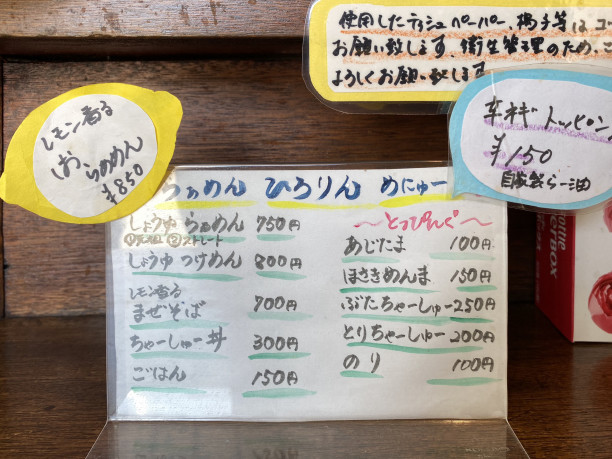 使用したティシュペーパー、楊子等は
お願い致します。衛生管理のため、
よろしくお願い致します
レモン香る
しお らぁめん
¥850
辛ネギ トッピング
¥150
自家製らー油
らぁめん ひろりん めにゅー
しょうゆ らぁめん 750円
②ストレート
しょうゆ つけめん 800円
レモン香る
まぜそば 700円
ちゃーしゅー丼 300円
ごはん 150円
〜とっぴんぐ〜
あじたま 100円
ほさきめんま 150円
ぶたちゃーしゅー 250円
とりちゃーしゅー 200円
のり 100円